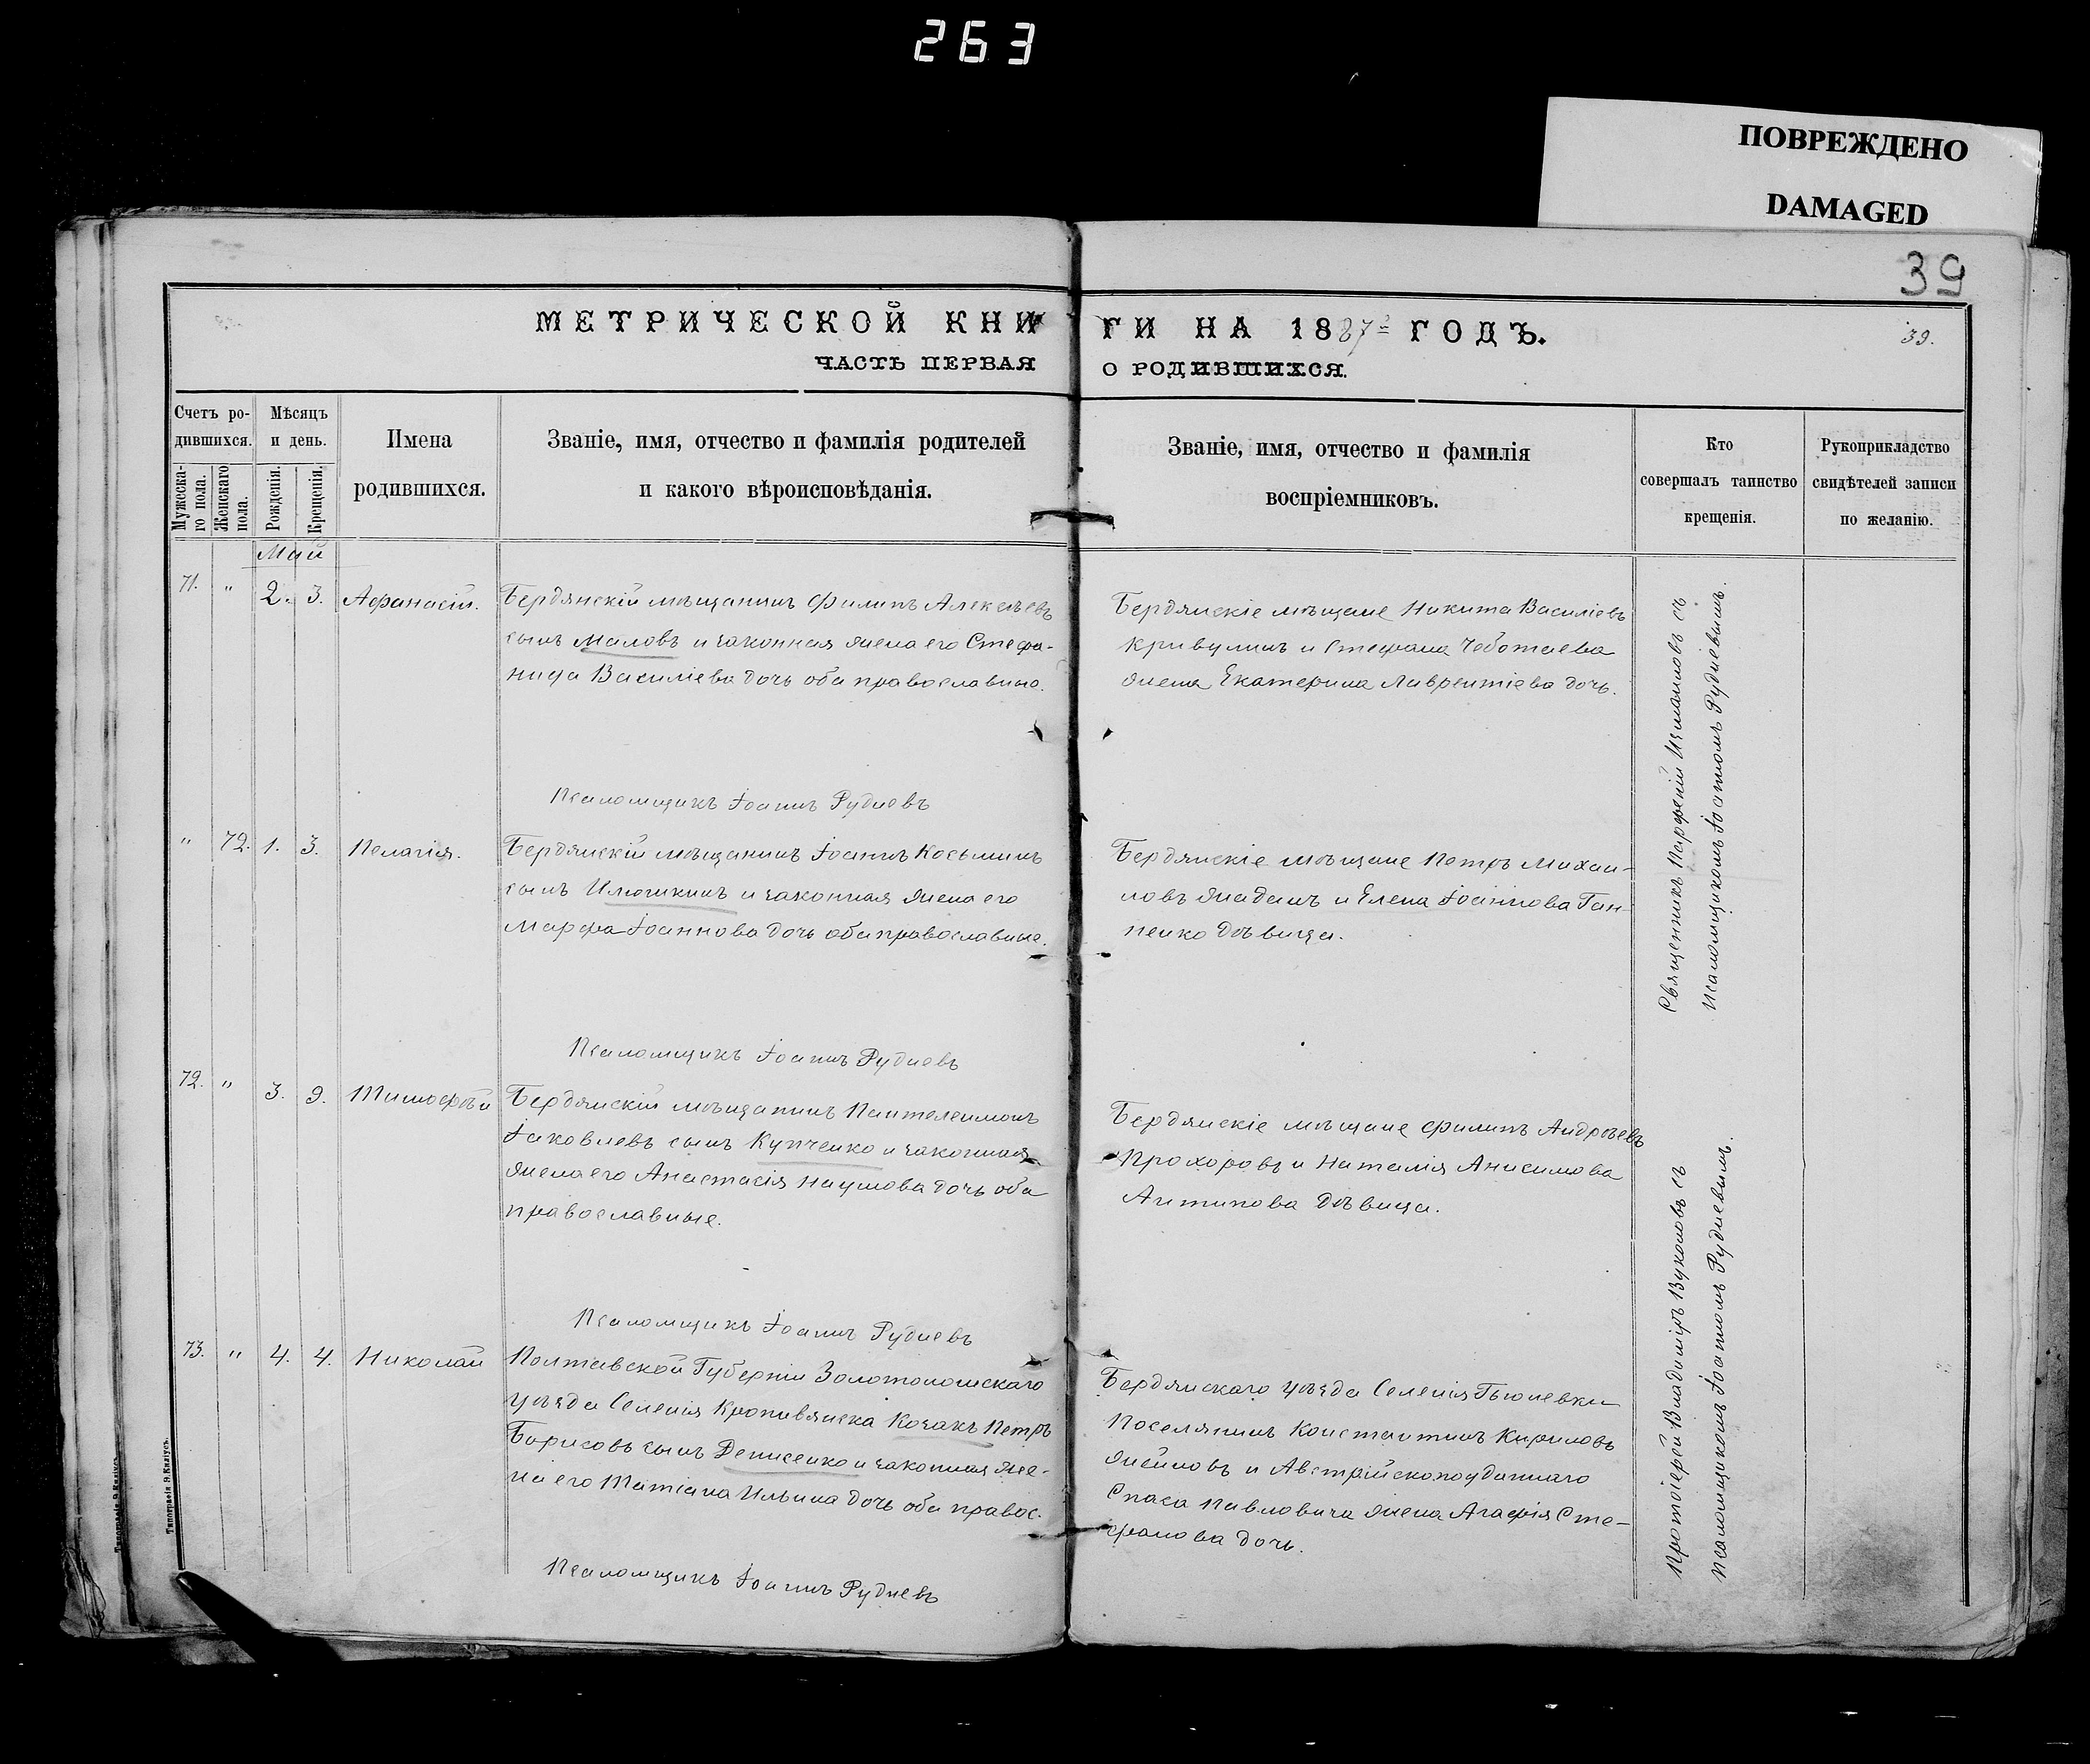 263
ПОВРЕЖДЕНО
DAMAGED
39
МЕТРИЧЕСКОЙ КНИГИ НА 1887 ГОДЪ.
39.
ЧАСТЬ ПЕРВАЯ О РОДИВШИХСЯ.
Счетъ ро-
дившихся.
Мужеска-
го пола.
Женскаго
пола.
Мѣсяцъ
и день.
Рожденія.
Крещенія.
Имена
родившихся.
Званіе, имя, отчество и фамилія родителей
и какого вѣроисповѣданія.
Званіе, имя, отчество и фамилія
воспріемниковъ.
Кто
совершалъ таинство
крещенія.
Рукоприкладство
свидѣтелей записи
по желанію.
Май
71. " 2. 3. Афанасій.
Бердянскій мѣщанинъ Филипъ Алексѣевъ
сынъ Маловъ и законная жена его Стефа-
нида Василіева дочь оба православные.
Бердянскіе мѣщане Никита Василіевъ
Кривулинъ и Стефана Чеботаева
жена Екатерина Лаврентіева дочь.
Псаломщикъ Іоаннъ Рудневъ
" 72. 1. 3. Пелагія.
Бердянскій мѣщанинъ Іоаннъ Косьминъ
сынъ Илюшкинъ и законная жена его
Марфа Іоаннова дочь оба православные.
Бердянскіе мѣщане Петръ Михаи-
ловъ Жаданъ и Елена Іоаннова Ган-
ненко дѣвица.
Священникъ Парфеній Измаиловъ съ
псаломщикомъ Іоанномъ Рудневымъ.
Псаломщикъ Іоаннъ Рудневъ
72. " 3. 9. Тимофѣй
Бердянскій мѣщанинъ Пантелеимонъ
Іаковлевъ сынъ Купченко и законная
жена его Анастасія Наумова дочь оба
православные.
Бердянскіе мѣщане Филипъ Андрѣевъ
Прохоровъ и Наталія Анисимова
Антипова дѣвица.
Псаломщикъ Іоаннъ Рудневъ
73. " 4. 4. Николай
Полтавской Губерніи Золотоношскаго
уѣзда Селенія Кропивянска Козакъ Петръ
Борисовъ сынъ Денисенко и законная же-
на его Татіана Ильина дочь оба правос.
Бердянскаго уѣзда Селенія Гюневки
Поселянинъ Константинъ Кириловъ
и Австрійскоподданнаго
Спаса Павловича жена Агафія Сте-
фанова дочь.
Протоіерей Владиміръ Вуколовъ съ
псаломщикомъ Іоанномъ Рудневымъ.
Псаломщикъ Іоаннъ Рудневъ
Типографія Э.Килусъ.